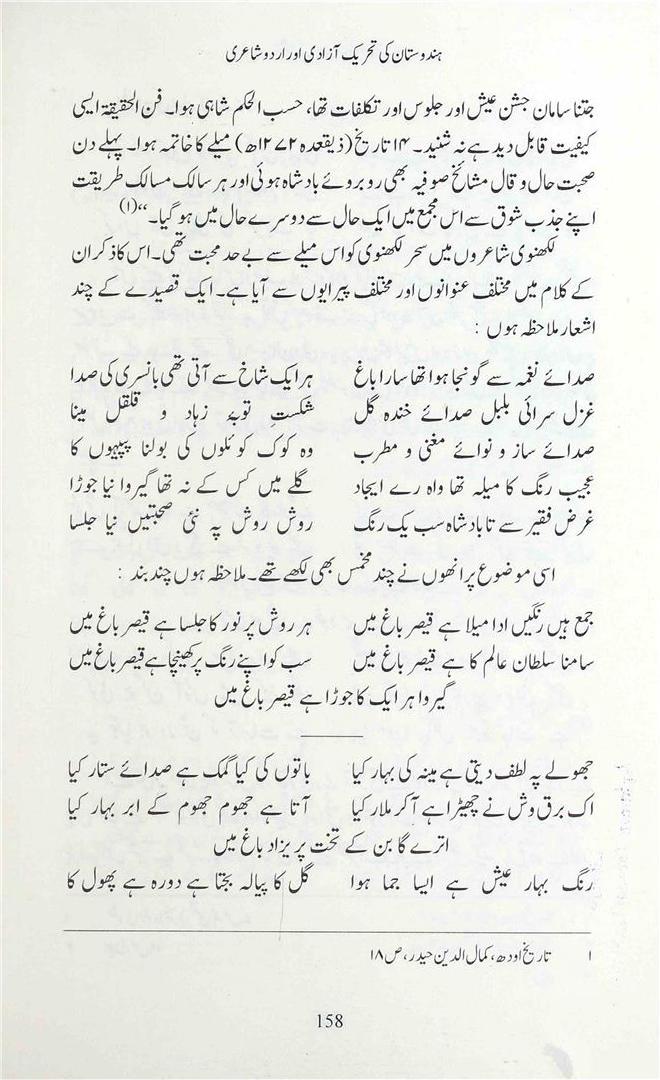 ہندوستان کی تحریک آزادی اور اردو شاعری
جتنا سامان جشن عیش اور جلوس اور تکلفات تھا، حسب الحکم شاہی ہوا۔ فن الحقیقۃ ایسی
کیفیت قابل دید ہے نہ شنید۔ ۱۴ تاریخ (ذیقعدہ ۱۲۷۲ھ) میلے کا خاتمہ ہوا۔ پہلے دن
صحبت حال و قال مشائخ صوفیہ بھی روبروئے بادشاہ ہوئی اور ہر سالک مسالک طریقت
اپنے جذب شوق سے اس مجمع میں ایک حال سے دوسرے حال میں ہو گیا۔“(۱)
لکھنوی شاعروں میں سحر لکھنوی کو اس میلے سے بے حد محبت تھی۔ اس کا ذکر ان
کے کلام میں مختلف عنوانوں اور مختلف پیرایوں سے آیا ہے۔ ایک قصیدے کے چند
اشعار ملاحظہ ہوں :
صدائے نغمہ سے گونجا ہوا تھا سارا باغ ہر ایک شاخ سے آتی تھی بانسری کی صدا
غزل سرائی بلبل صدائے خندہ گل شکستِ توبۂ زہاد و قلقل مینا
صدائے ساز و نوائے مغنی و مطرب وہ کوک کوئلوں کی بولنا پپیہوں کا
عجیب رنگ کا میلہ تھا واہ رے ایجاد گلے میں کس کے نہ تھا گیروا نیا جوڑا
غرض فقیر سے تا بادشاہ سب یک رنگ روش روش پہ نئی صحبتیں نیا جلسا
اسی موضوع پر انھوں نے چند مخمس بھی لکھے تھے۔ ملاحظہ ہوں چند بند :
جمع ہیں رنگیں ادا میلا ہے قیصر باغ میں ہر روش پر نور کا جلسا ہے قیصر باغ میں
سامنا سلطان عالم کا ہے قیصر باغ میں سب کو اپنے رنگ پر کھینچا ہے قیصر باغ میں
گیروا ہر ایک کا جوڑا ہے قیصر باغ میں
جھولے پہ لطف دیتی ہے مینہ کی بہار کیا باتوں کی کیا گمک ہے صدائے ستار کیا
اک برق وش نے چھیڑا ہے آ کر ملار کیا آتا ہے جھوم جھوم کے ابر بہار کیا
اترے گا بن کے تخت پریزاد باغ میں
رنگ بہار عیش ہے ایسا جما ہوا گل کا پیالہ بجتا ہے دورہ ہے پھول کا
۱ تاریخ اودھ، کمال الدین حیدر، ص ۱۸
158